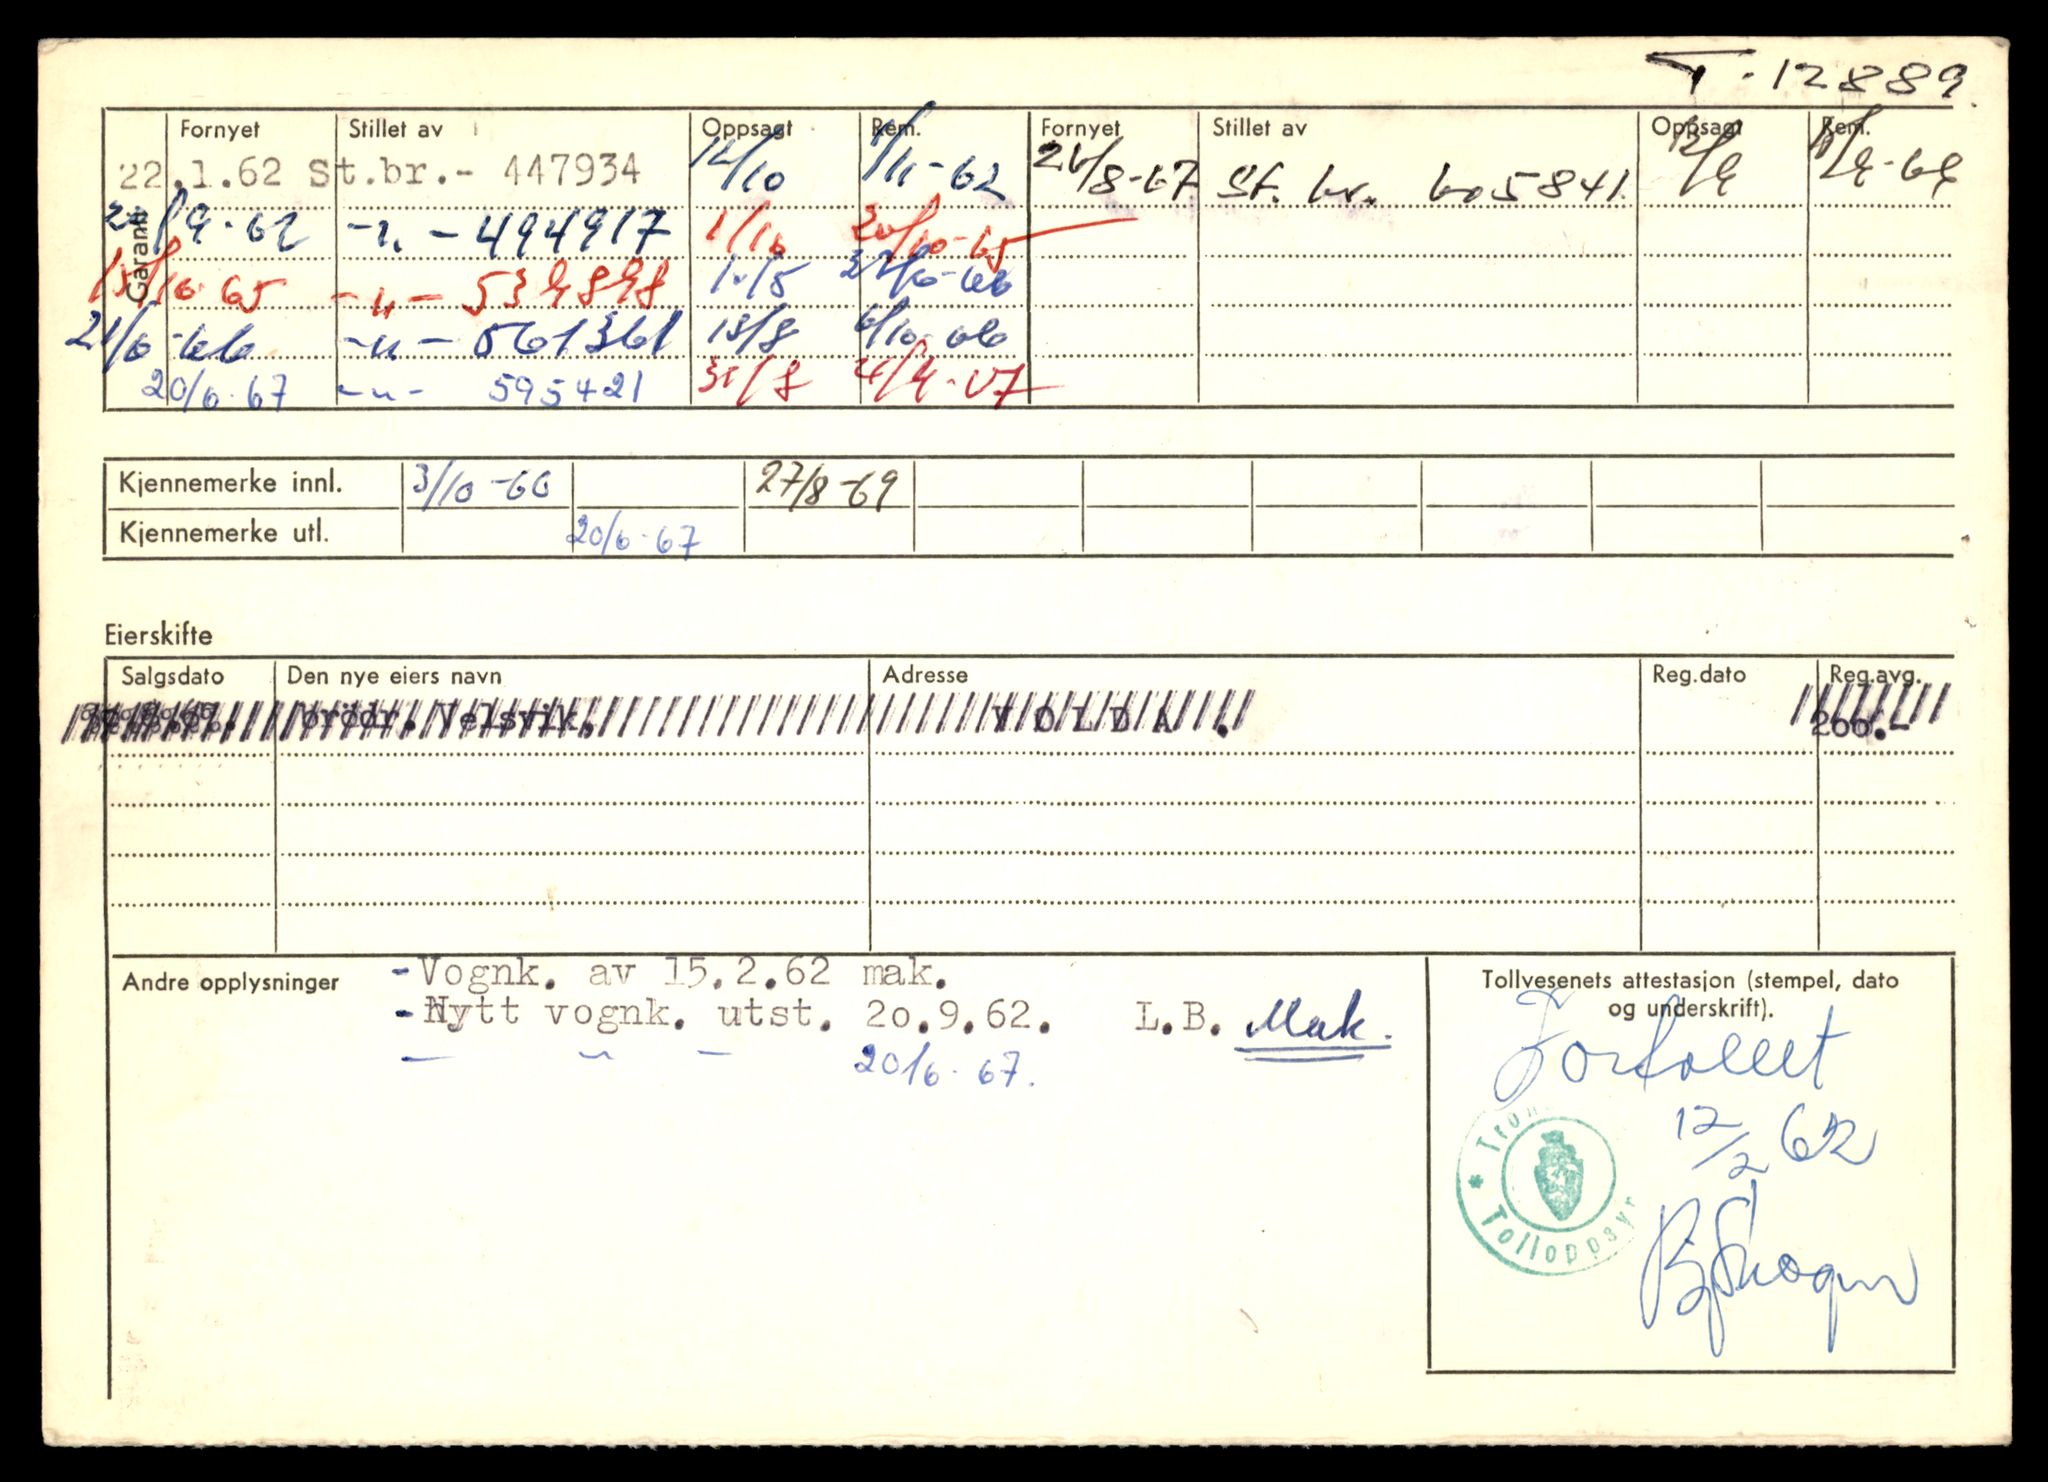 T-12889.
Fornyet Stillet av Oppsagt Rem. Fornyet Stillet av Oppsagt Rem.
Garanti
22.1.62 St.br.- 447934 12/10 /11-62 26/8-67 St. br. 605841. 12/9
/9-62 -"- 494917 1/10 20/10-65
15/10-65 -"- 539898 10/5 -66
21/6-66 -"- 561361 15/8 6/10-66
20/6-67 -"- 595421 31/8 4/9-67
Kjennemerke innl. 3/10-66 27/8-69
Kjennemerke utl. 20/6-67
Eierskifte
Salgsdato Den nye eiers navn Adresse Reg.dato Reg.avg.
Velsvik. VOLDA . 200.-
Andre opplysninger
-Vognk. av 15.2.62 mak.
-Nytt vognk. utst. 20.9.62. L.B. Mak.
— " — 20/6-67.
Tollvesenets attestasjon (stempel, dato
og underskrift).
Fortollet
12/2 62
Tolloppsyn